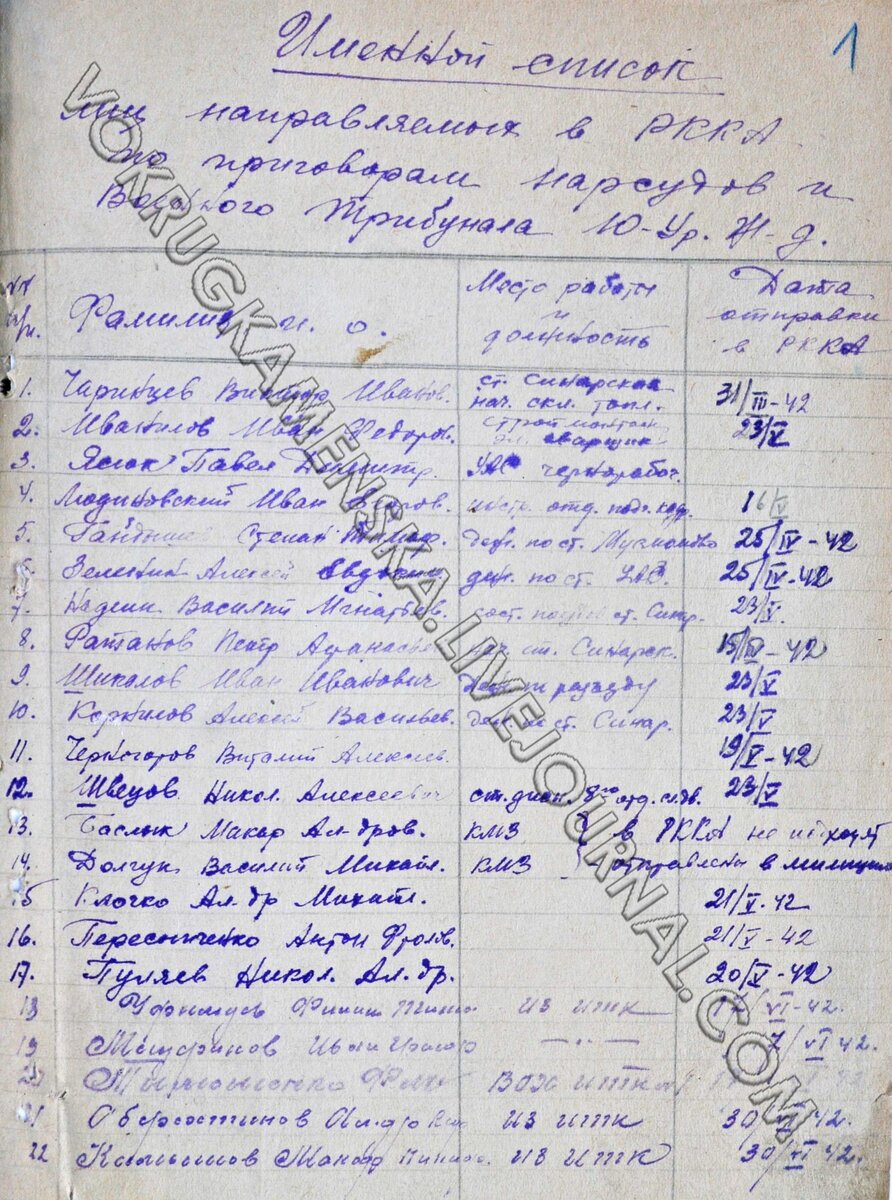 1
Именной список
лиц направляемых в РККА
по приговорам нарсудов и
Военного Трибунала Ю-Ур. Ж-д.
Фамилия и. о.
Место работы и должность
Дата отправки в РККА
1. Чаринцев Виктор Иванов. ст. Синарская нач. скл. топл. 31/III-42
2. Иванилов Иван Федоров. эл. сварщик 23/V
3. Яслок Павел Дмитр. УАС чернорабоч.
4. Людиновский Иван 16/V
5. Степан деж. по ст. 25/IV-42
6. Зеленин Алексей деж. по ст. УАС. 25/IV-42
7. Надеин Василий Игнатьев. сост. ст. Синар. 23/V.
8. Фатанов Петр Афанасье нач. ст. Синарск. 15/IV-42
9. Шикалов Иван Иванович разъезду 23/V
10. Корнилов Алексей Васильев. деж. по ст. Синар. 23/V
11. Черногоров Виталий Алексеев. 19/V-42
12. Швецов Никол. Алексеевич ст. дисп. 8го отд. сл. дв. 23/V
13. Баслык Макар Ал-дров. КМЗ в РККА не подходят
14. Долгук Василий Михайл. КМЗ отправлены в милицию
15 Клочко Ал-др Михайл. 21/V-42
16. Антон Фролов. 21/V-42
17. Пуляев Никол. Ал-др. 20/V-42
18 Филип из ИТК 17/VI-42.
19 Иван —"— 7/VI 42.
20 ВОХ ИТК
21 из ИТК 30/VI 42.
22 Макар из ИТК 30/VI 42.
VOKRUGKAMENSKA.LIVEJOURNAL.COM